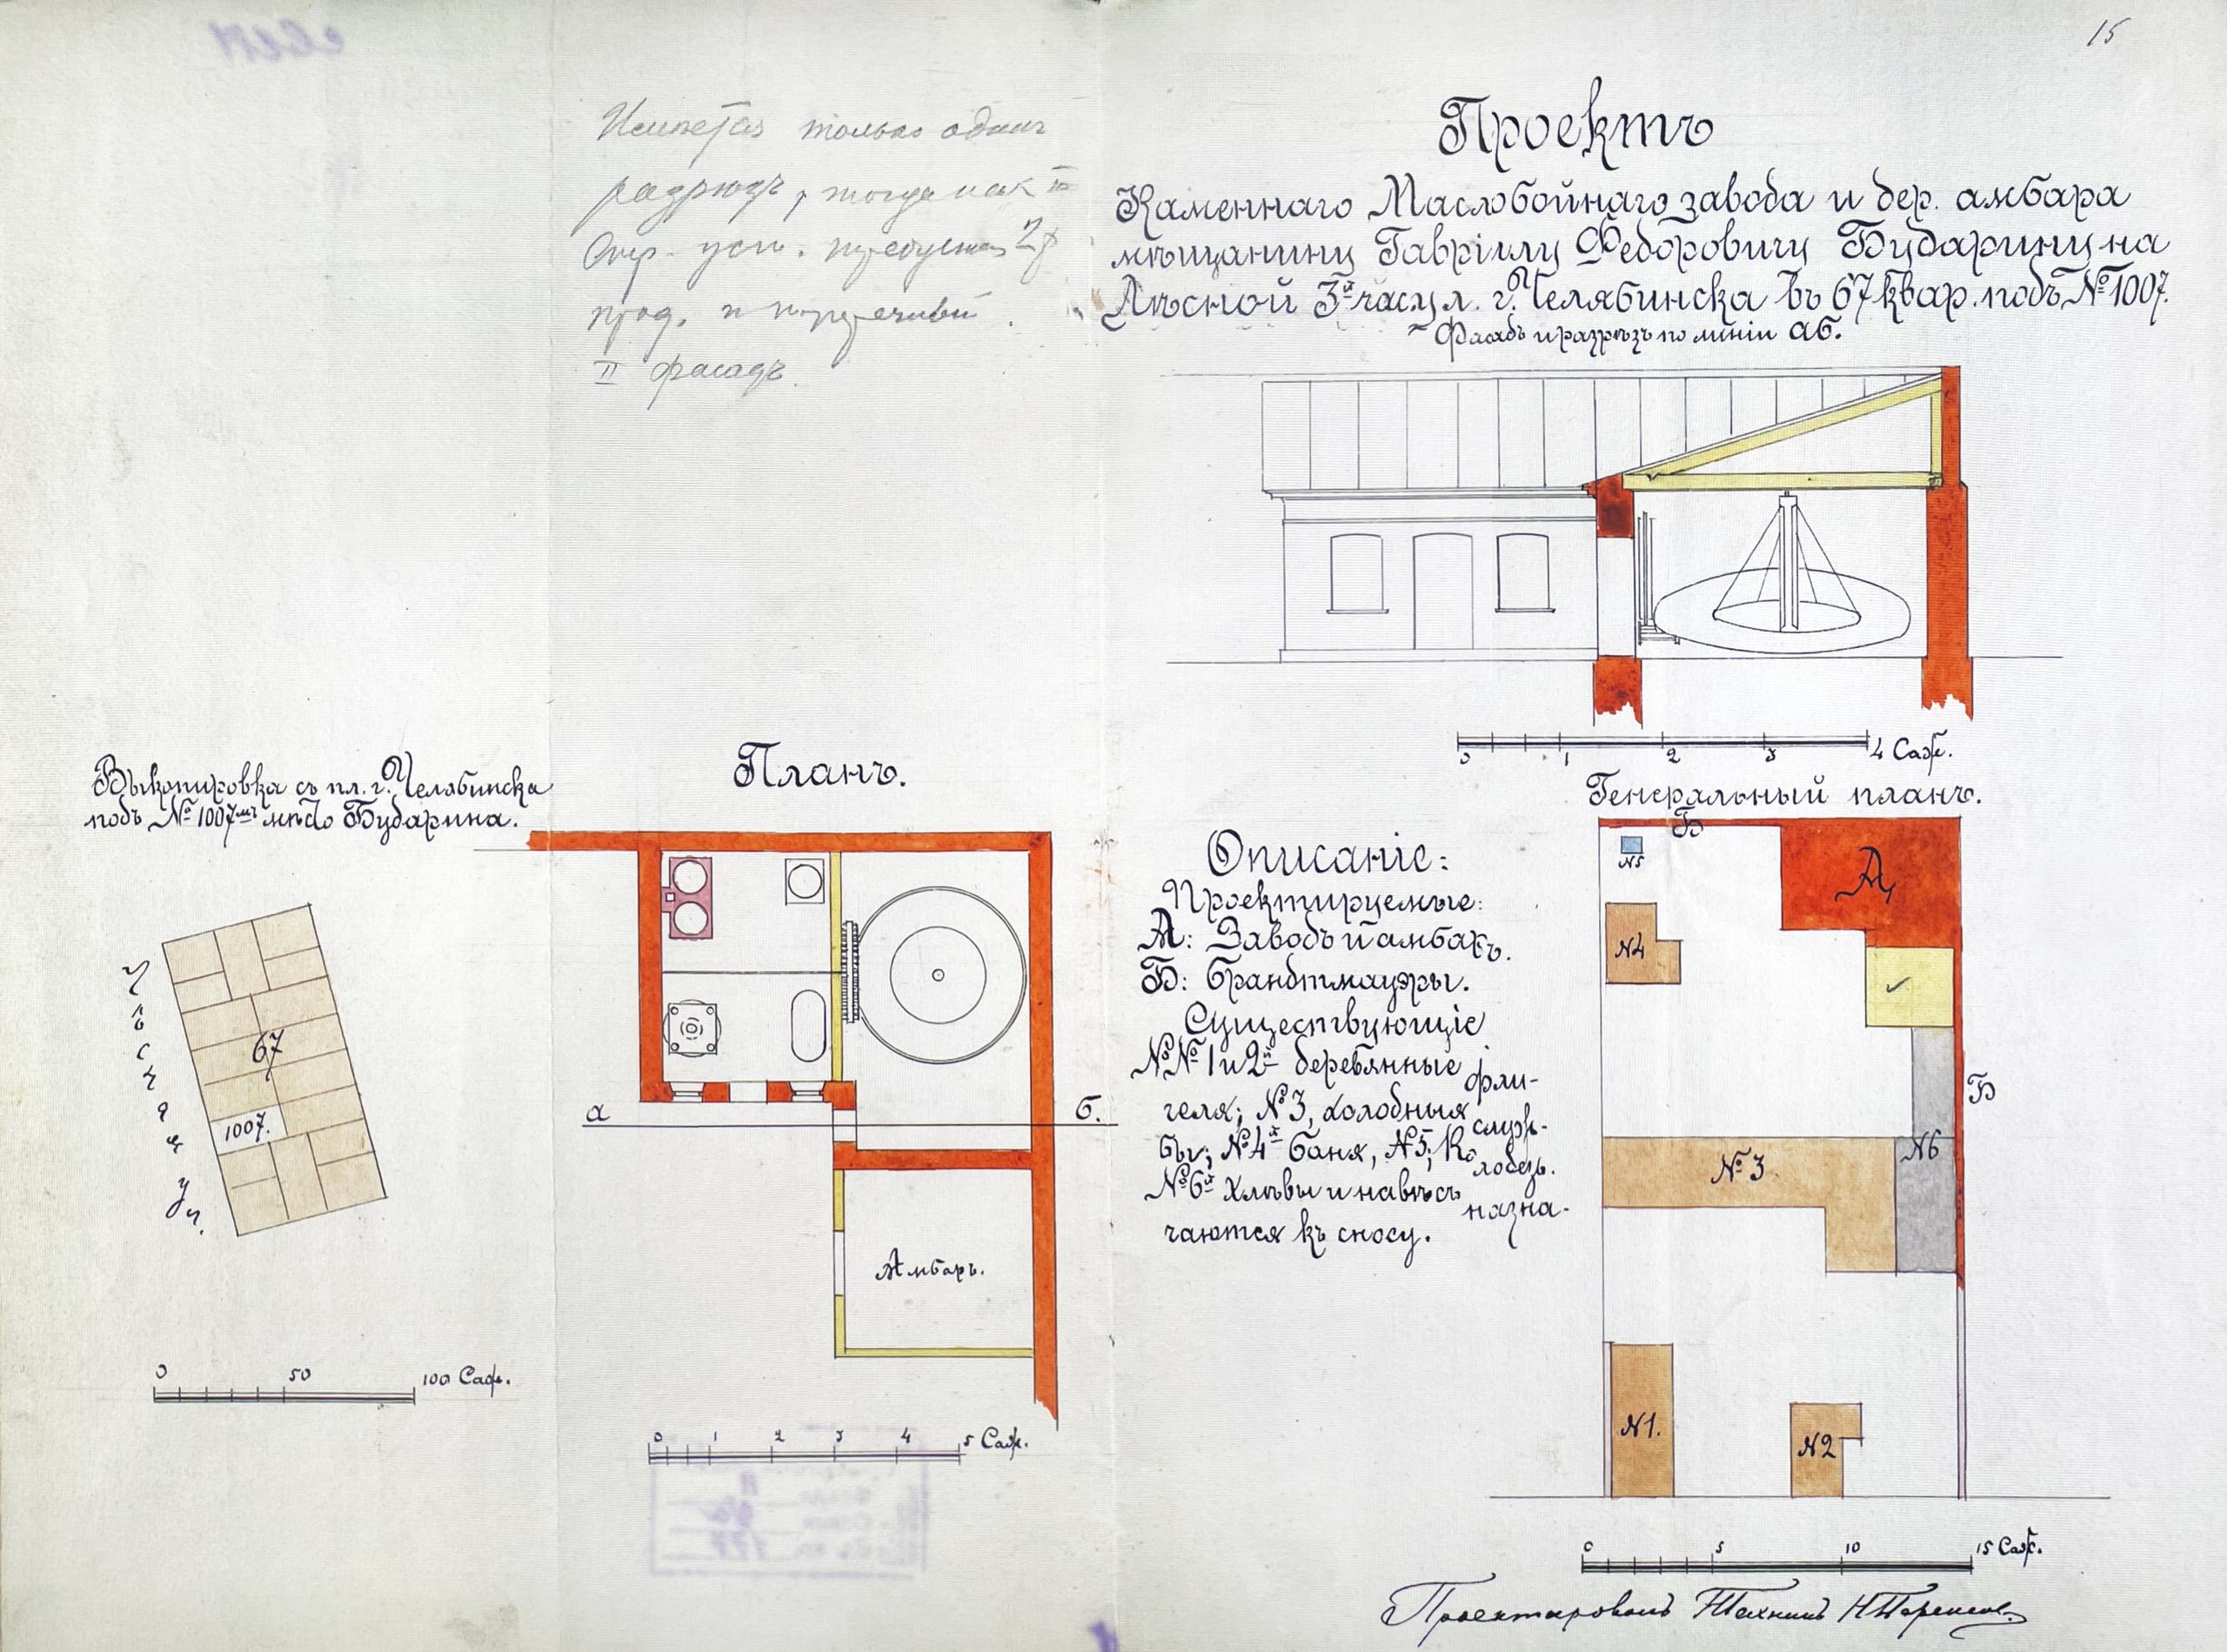 15
только одинъ
разрѣзъ, тогда какъ
2
прод. и поперечный.
II фасадъ.
Проектъ
Каменнаго Маслобойнаго завода и дер. амбара
мѣщанину Гавріилу Федоровичу Бударину на
Лѣсной 3й част. г. Челябинска въ 67 квар. подъ № 1007.
Фасадъ и разрѣзъ по линіи аб.
0 1 2 3 4 Саж.
Выкопировка съ пл. г. Челябинска
подъ № 1007мъ мѣсто Бударина.
67
1007.
ул.
0 50 100 Саж.
Планъ.
а б.
Амбаръ.
0 1 2 3 4 5 Саж.
Описаніе:
Проектируемые:
А: Заводъ и амбаръ.
Б: брандтмауры.
Существующіе
№№ 1 и 2й деревянные фли-
геля; №3, холодныя служ-
бы; №4й баня, №5, Колодезь.
№6й хлѣвы и навѣсъ назна-
чаются къ сносу.
Генеральный планъ.
Б
№5
А
№4
Б
№6
№3
№1.
№2
0 5 10 15 Саж.
Проектировалъ Техникъ